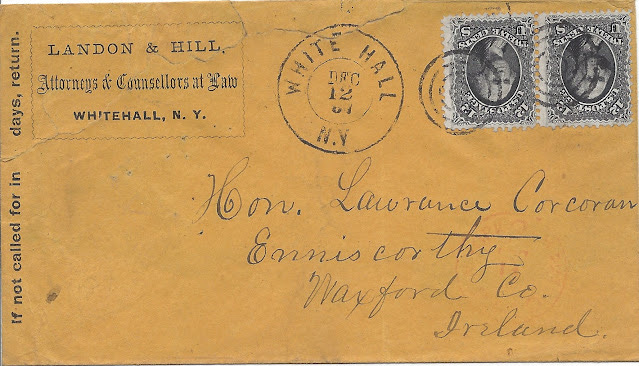 LANDON & HILL,
Attorneys & Counsellors at Law
WHITEHALL, N. Y.
If not called for in days, return.
WHITE HALL
DEC
12
N.Y.
12 12
U.S. POSTAGE
U TWELVE CENTS S
12 12
U.S. POSTAGE
U TWELVE CENTS S
Hon. Lawrance Corcoran
Enniscorthy
Waxford Co.
Ireland.